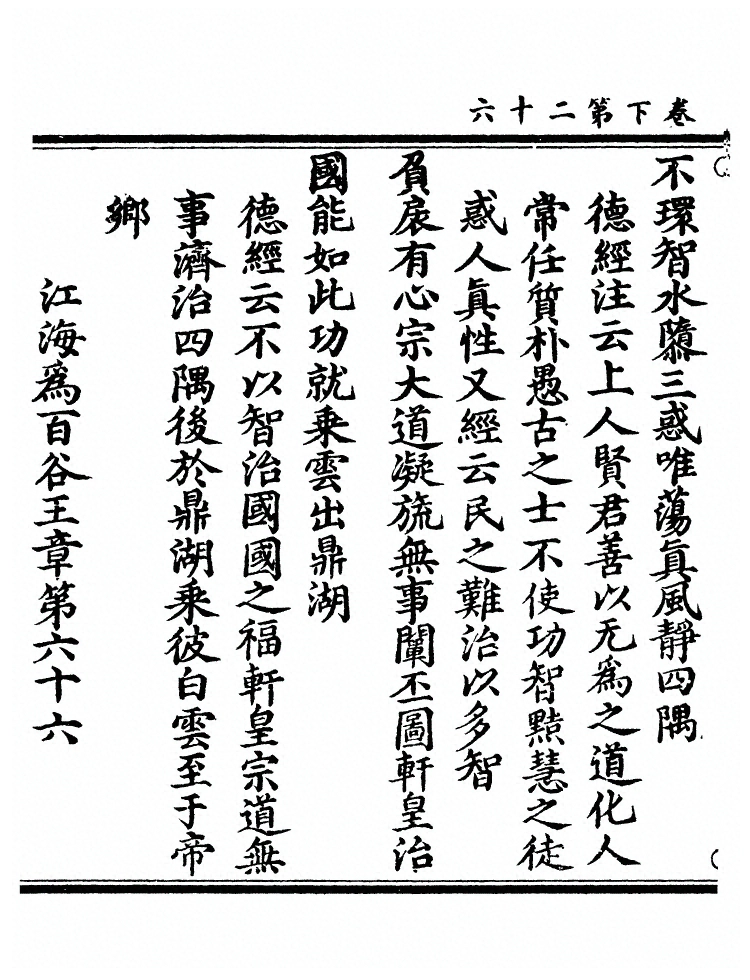 卷下第二十六
不環智水隳三惑唯蕩眞風靜四隅
德經注云上人賢君善以无爲之道化人
常任質朴愚古之士不使功智黠慧之徒
惑人眞性又經云民之難治以多智
負扆有心宗大道凝旒無事闡丕圖軒皇治
國能如此功就乘雲出鼎湖
德經云不以智治國國之福軒皇宗道無
事濟治四隅後於鼎湖乘彼白雲至于帝
鄉
江海爲百谷王章第六十六